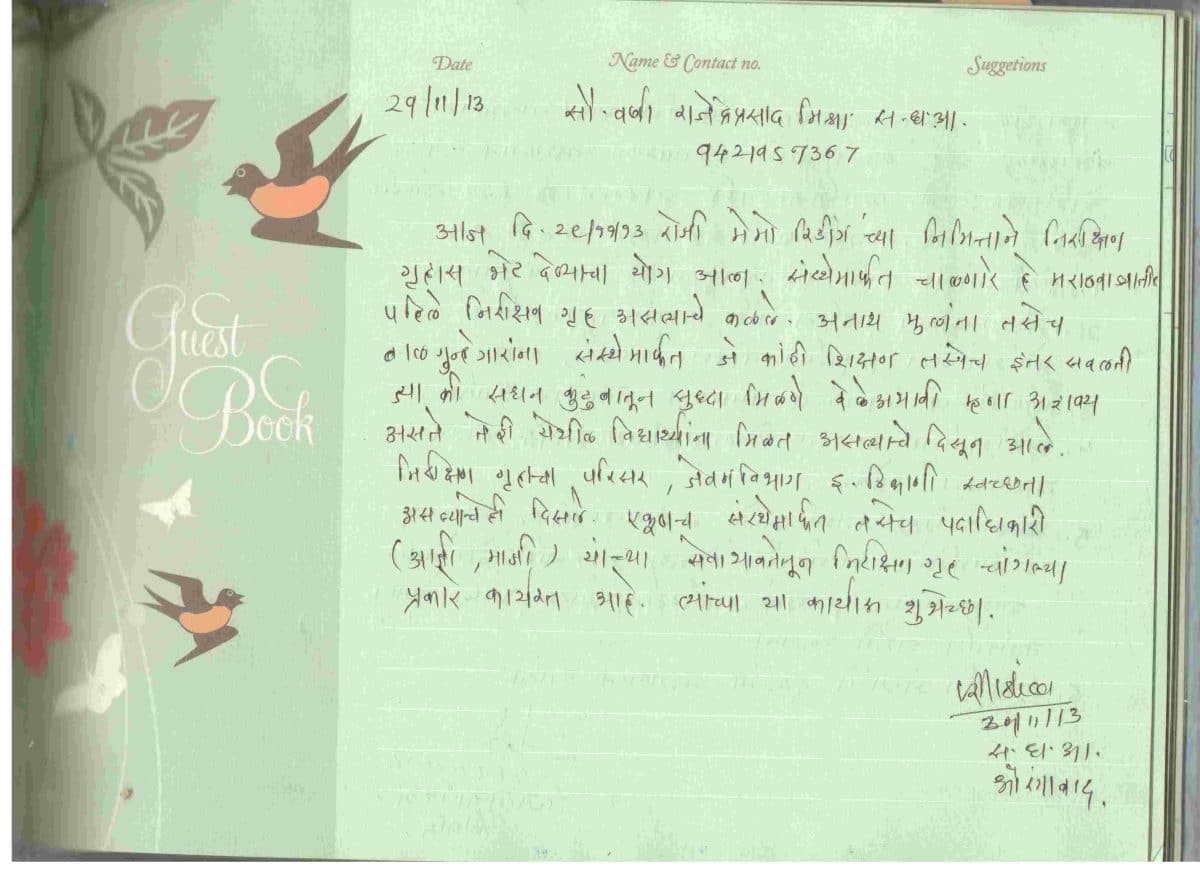 Date Name & Contact no. Suggetions
29/11/13 सौ. वर्षा राजेंद्रप्रसाद मिश्रा स.ध.आ.
9421957367
आज दि. २९/११/१३ रोजी मेमो रिडींग च्या निमित्ताने निरीक्षण
गृहास भेट देण्याचा योग आला. संस्थेमार्फत चाळणारे हे मराठवाड्यातील
पहिले निरीक्षण गृह असल्याचे कळले. अनाथ मुलांना तसेच
बाळ गुन्हेगारांना संस्थेमार्फत जे कांही शिक्षण तसेच इतर सवलती
ज्या की सधन कुटुंबातून सुध्दा मिळणे वेळेअभावी अशक्य
असते तेही येथील विद्यार्थ्यांना मिळत असल्याचे दिसून आले.
निरीक्षण गृहाचा परिसर, जेवणविभाग इ. ठिकाणी स्वच्छता
असल्याचेही दिसले. एकूणच संस्थेमार्फत तसेच पदाधिकारी
(आजी, माजी) यांच्या सेवाभावतेतून निरीक्षण गृह चांगल्या
प्रकारे कार्यरत आहे. त्यांच्या या कार्यास शुभेच्छा.
Guest
Book
11/13
स.ध.आ.
औरंगाबाद.